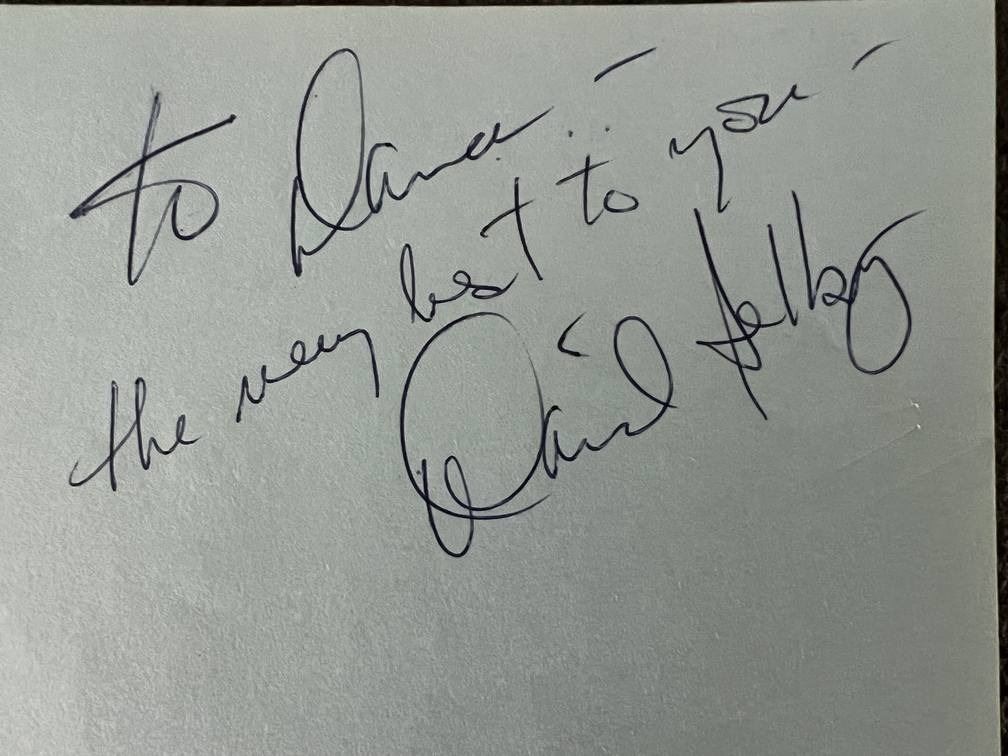 To Dana –
the very best to you –
David Selby